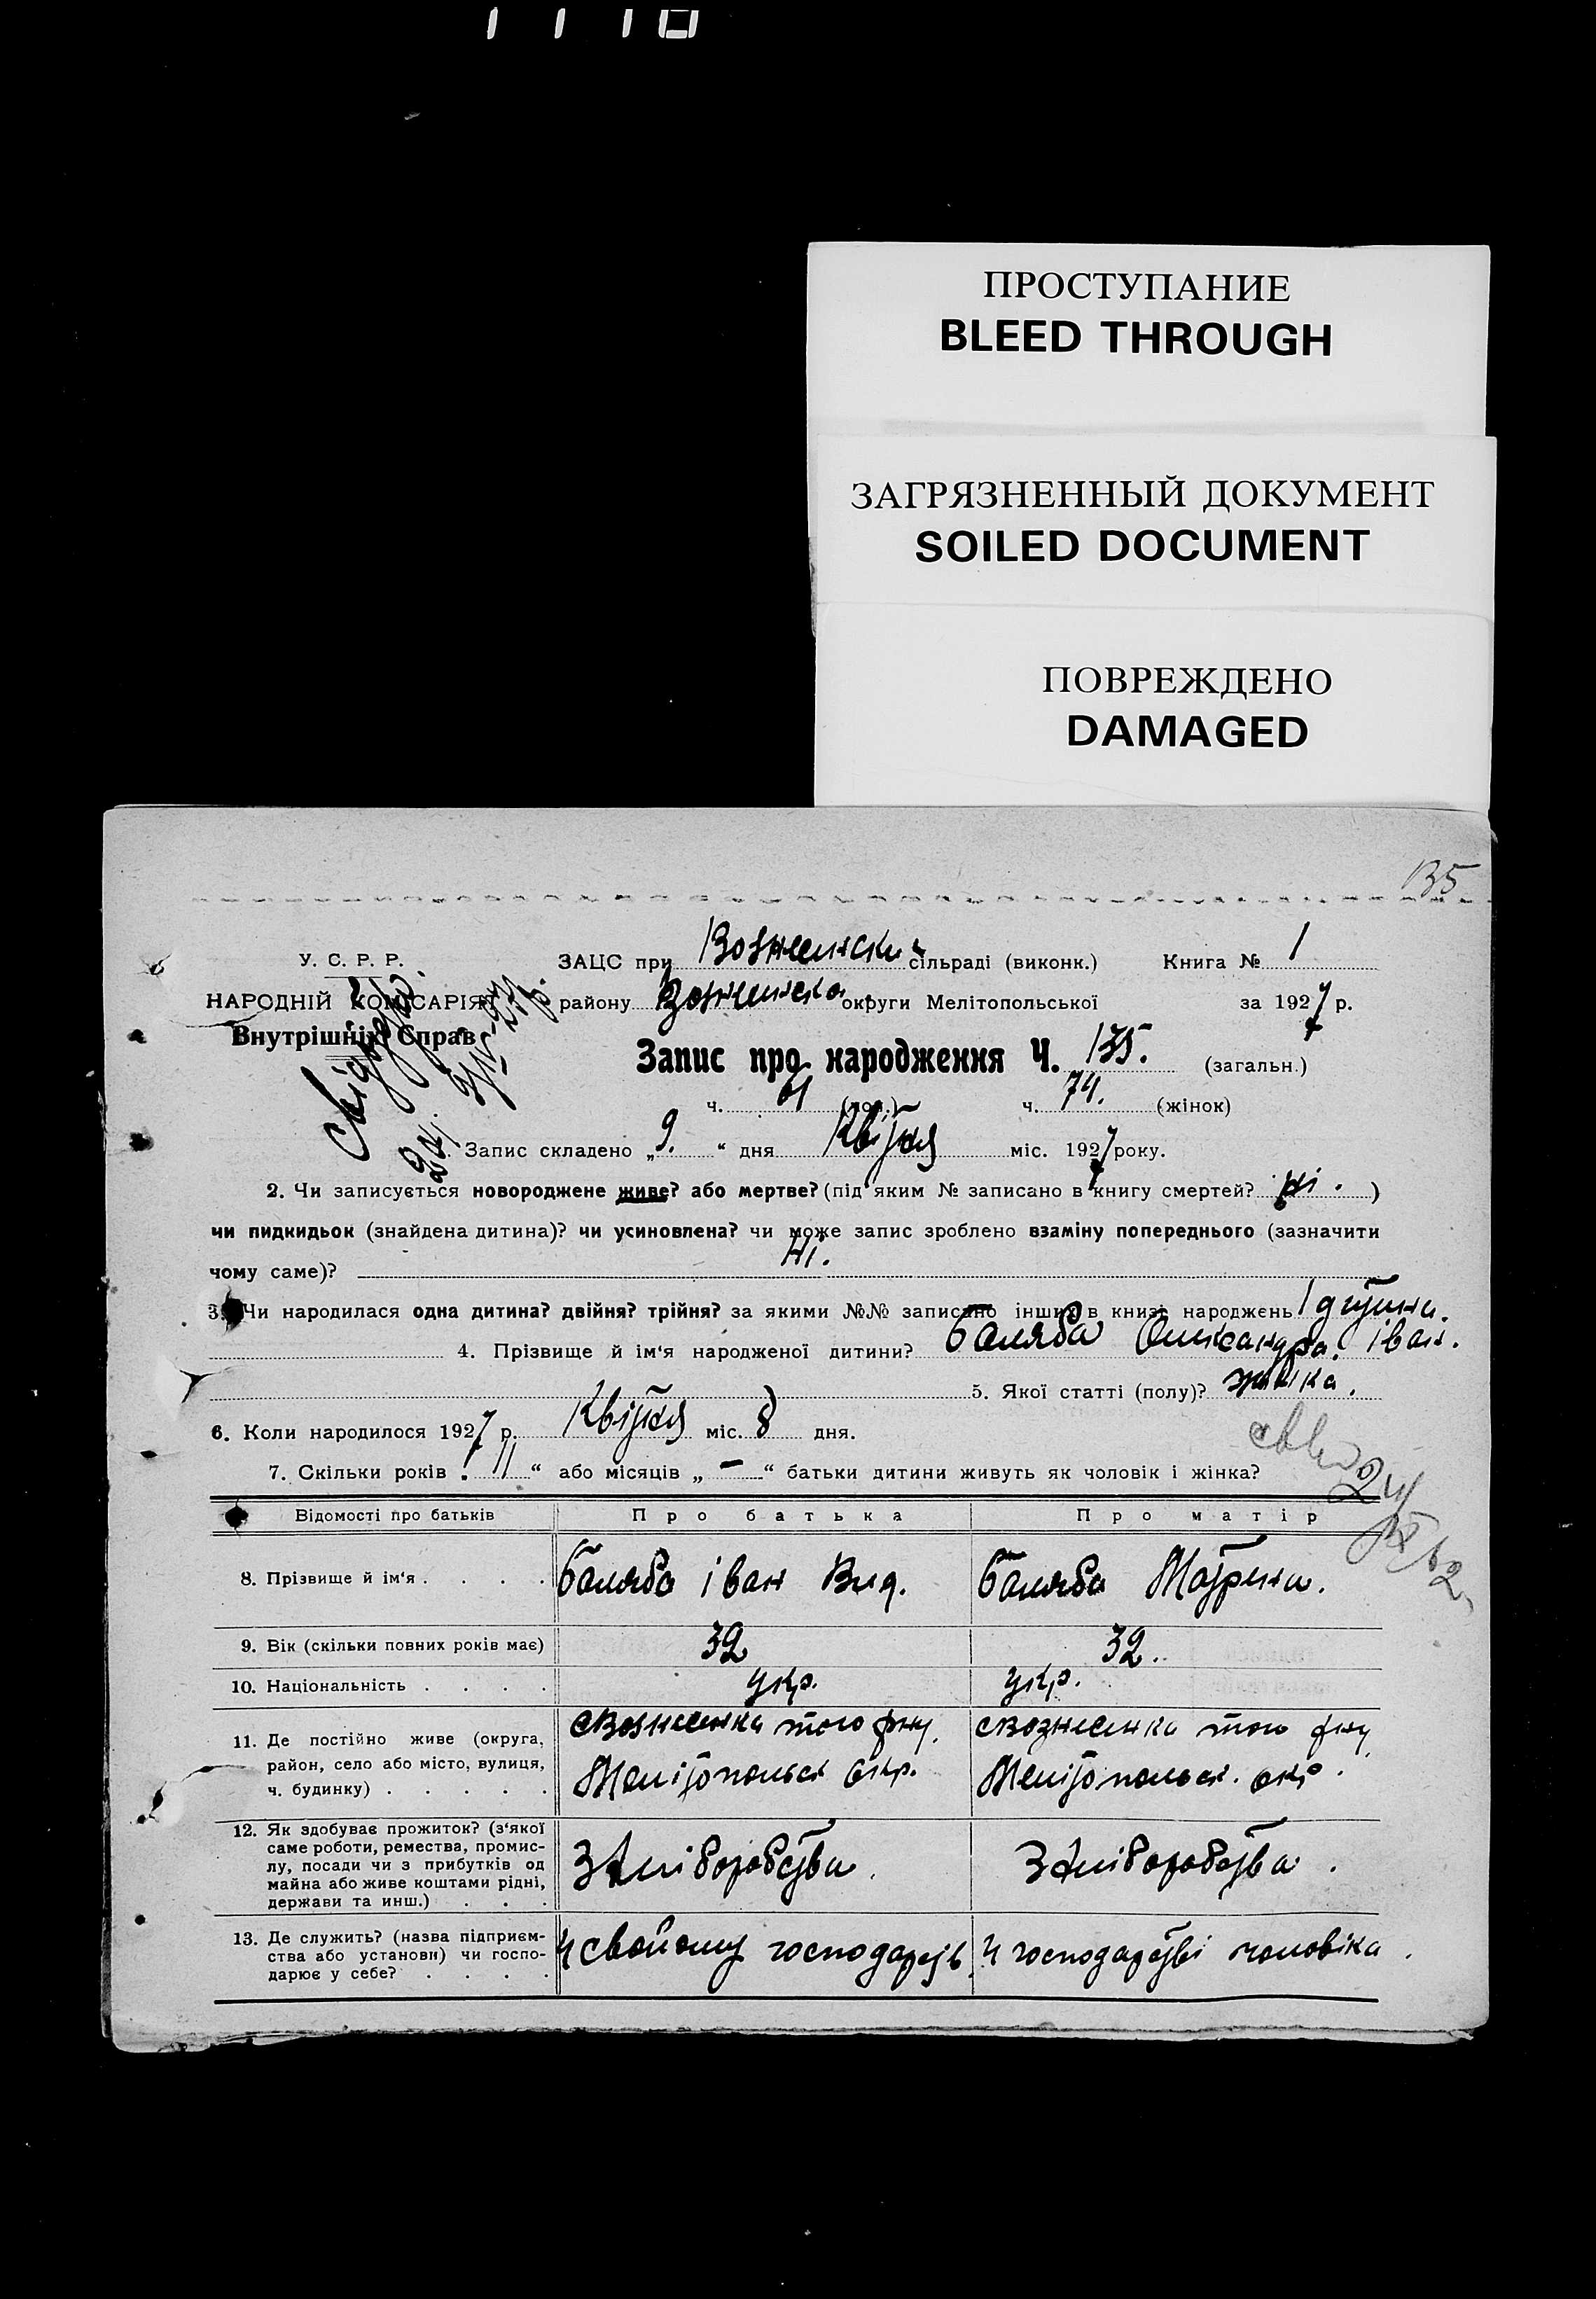 ПРОСТУПАНИЕ
BLEED THROUGH
ЗАГРЯЗНЕННЫЙ ДОКУМЕНТ
SOILED DOCUMENT
ПОВРЕЖДЕНО
DAMAGED
135
У. С. Р. Р.
НАРОДНІЙ КОМІСАРІЯТ
Внутрішніх Справ
ЗАЦС при сільраді (виконк.) Книга № 1
району округи Мелітопольської за 1927 р.
Запис про народження Ч. 135. (загальн.)
ч. 61 (чол.) ч. 74. (жінок)
Запис складено „9.“ дня Квітня міс. 1927 року.
2. Чи записується новороджене живе? або мертве? (під яким № записано в книгу смертей? ні. )
чи пидкидьок (знайдена дитина)? чи усиновлена? чи може запис зроблено взаміну попереднього (зазначити
чому саме)? Ні.
3. Чи народилася одна дитина? двійня? трійня? за якими №№ записано інших в книзі народжень 1 дитина.
4. Прізвище й ім'я народженої дитини? Баляба Олександра. Іван.
5. Якої статті (полу)? жінка.
6. Коли народилося 1927 р. Квітня міс. 8 дня.
7. Скільки років 11 “ або місяців „ — “ батьки дитини живуть як чоловік і жінка?
Відомості про батьків Про батька Про матір
8. Прізвище й ім'я . . . . Баляба Іван Баляба Мотрина.
9. Вік (скільки повних років має) 32 32.
10. Національність . . . . укр. укр.
11. Де постійно живе (округа,
район, село або місто, вулиця,
ч. будинку) . . . . .
с Вознесенка того р-ну,
Мелітопольск окр.
с Вознесенка того р-ну,
Мелітопольск. окр.
12. Як здобуває прожиток? (з'якої
саме роботи, ремества, промис-
лу, посади чи з прибутків од
майна або живе коштами рідні,
держави та инш.) . . .
З хліборобства.
З хліборобства.
13. Де служить? (назва підприєм-
ства або установи) чи госпо-
дарює у себе? . . . .
У свойому господарств.
У господарстві чоловіка.